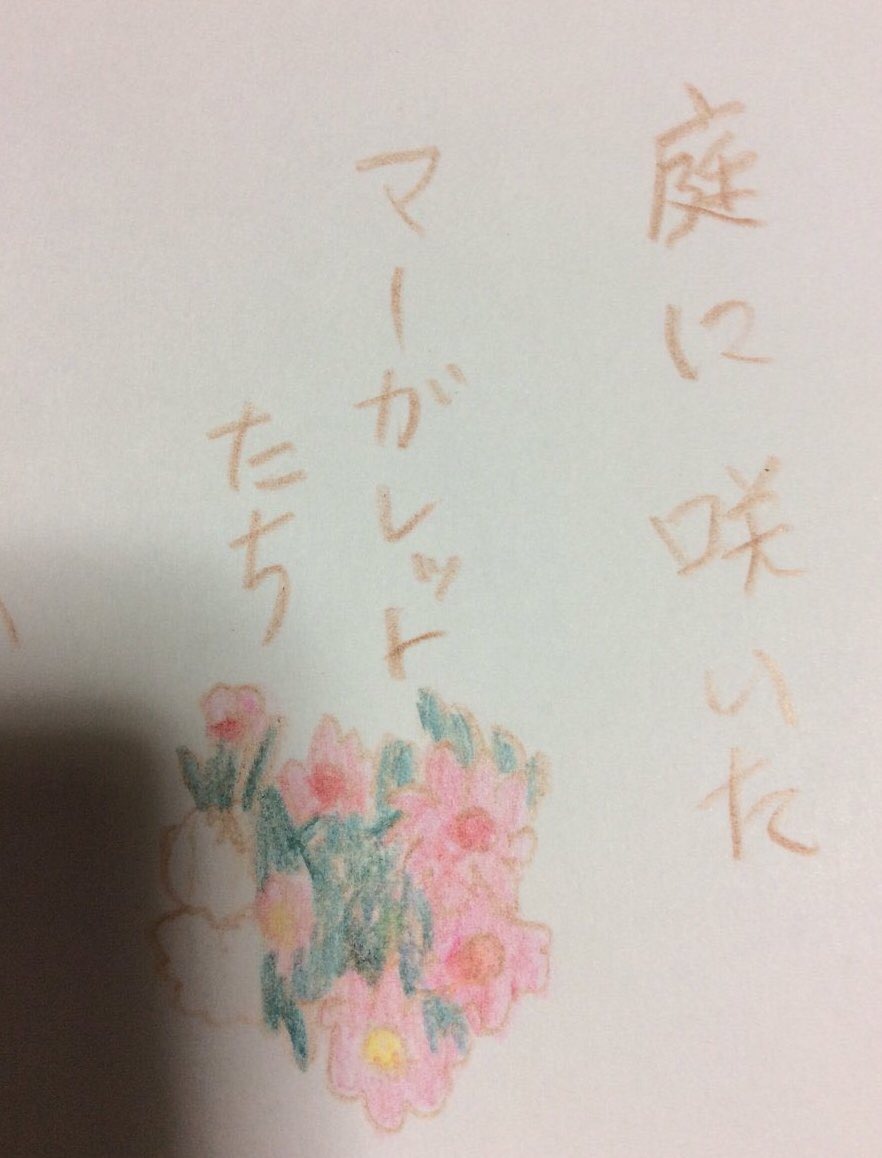 庭に咲いた
マーガレット
たち